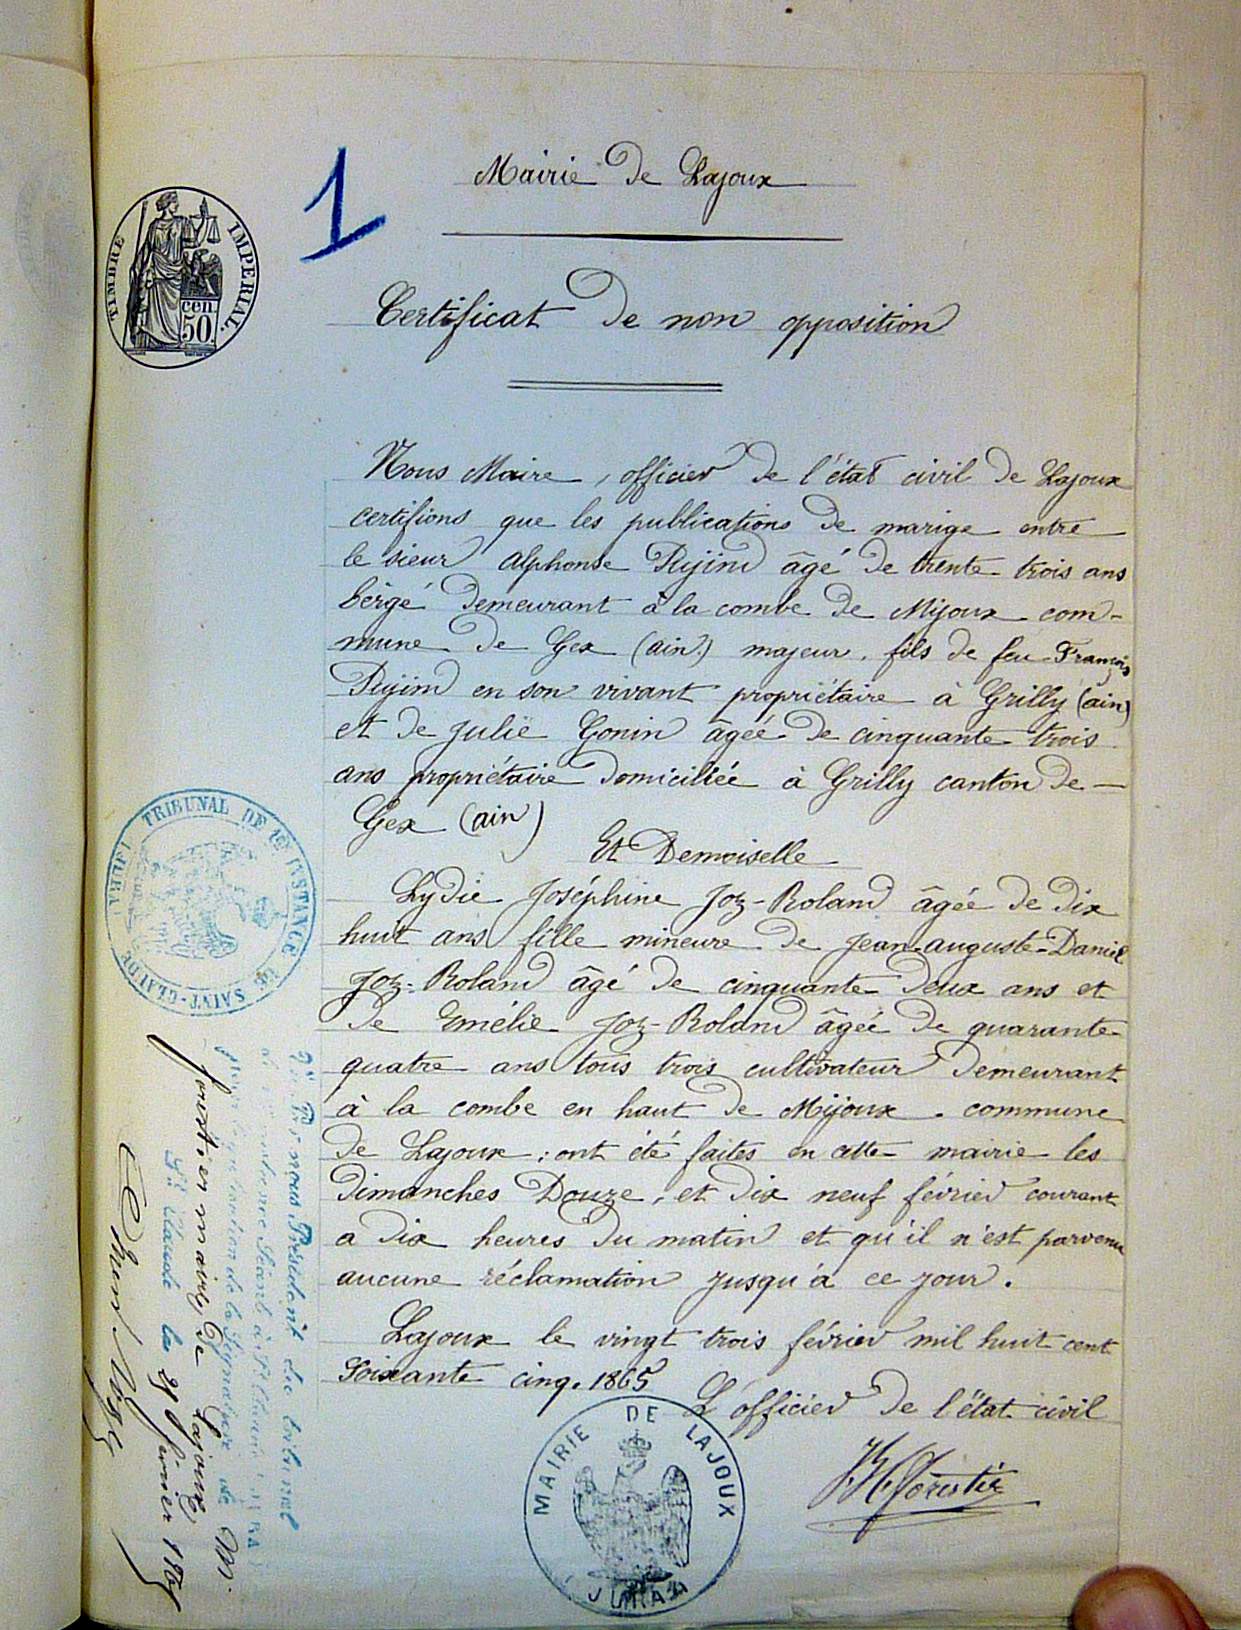 1
Mairie de Lajoux
TIMBRE IMPERIAL.
cen.
50
Certificat de non opposition
Nous Maire, officier de l'état civil de Lajoux
certifions que les publications de marige entre
le sieur Alphonse âgé de trente trois ans
bérgé demeurant à la combe de Mijoux com-
mune de Gex (ain) majeur, fils de feu François
en son vivant propriétaire à Grilly (ain)
et de Julie Gonin âgée de cinquante trois
ans propriétaire domiciliée à Grilly canton de
Gex (ain)
Et Demoiselle
Lydie Joséphine Joz-Roland âgée de dix
huit ans fille mineure de Jean-auguste-Daniel
Joz-Roland âgé de cinquante deux ans et
de Emélie Joz-Roland âgée de quarante
quatre ans tous trois cultivateur demeurant
à la combe en haut de Mijoux. commune
de Lajoux; ont été faites en cette mairie les
dimanches Douze, et dix neuf février courant
a dix heures du matin et qu'il n'est parvenu
aucune réclamation jusqu'à ce jour.
Lajoux le vingt trois février mil huit cent
soixante cinq. 1865
L'officier de l'état civil
Forestier
MAIRIE DE LAJOUX
(JURA)
TRIBUNAL DE 1ère INSTANCE DE SAINT-CLAUDE (JURA)
nous, Président du tribunal
de la Signature de M.
forestier maire de Lajoux
St Claude le février